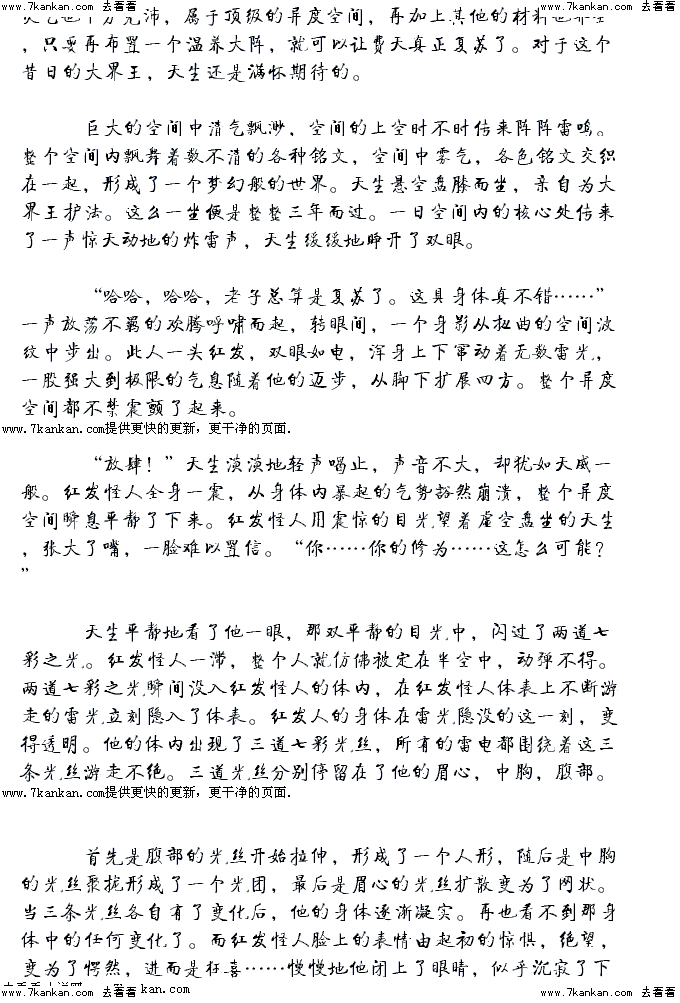 www.7kankan.com 去看看 www.7kankan.com 去看看 www.7kankan.com 去看看 www.7kankan.com 去看看
，属于顶级的异度空间，再加上其他的材料
，只要再布置一个温养大阵，就可以让费天真正复苏了。对于这个
昔日的大界王，天生还是满怀期待的。
巨大的空间中清气飘渺，空间的上空时不时传来阵阵雷鸣。
整个空间内飘舞着数不清的各种铭文，空间中雾气，各色铭文交织
在一起，形成了一个梦幻般的世界。天生悬空盘膝而坐，亲自为大
界王护法。这么一坐便是整整三年而过。一日空间内的核心处传来
了一声惊天动地的炸雷声，天生缓缓地睁开了双眼。
“哈哈，哈哈，老子总算是复苏了。这具身体真不错……”
一声放荡不羁的欢腾呼啸而起，转眼间，一个身影从扭曲的空间波
纹中步出。此人一头红发，双眼如电，浑身上下窜动着无数雷光，
一股强大到极限的气息随着他的迈步，从脚下扩展四方。整个异度
空间都不禁震颤了起来。
www.7kankan.com提供更快的更新，更干净的页面.
“放肆！”天生淡淡地轻声喝止，声音不大，却犹如天威一
般。红发怪人全身一震，从身体内暴起的气势豁然崩溃，整个异度
空间瞬息平静了下来。红发怪人用震惊的目光望着虚空盘坐的天生
，张大了嘴，一脸难以置信。“你……你的修为……这怎么可能？
”
天生平静地看了他一眼，那双平静的目光中，闪过了两道七
彩之光。红发怪人一滞，整个人就仿佛被定在半空中，动弹不得。
两道七彩之光瞬间没入红发怪人的体内，在红发怪人体表上不断游
走的雷光立刻隐入了体表。红发人的身体在雷光隐没的这一刻，变
得透明。他的体内出现了三道七彩光丝，所有的雷电都围绕着这三
条光丝游走不绝。三道光丝分别停留在了他的眉心，中胸，腹部。
www.7kankan.com提供更快的更新，更干净的页面.
首先是腹部的光丝开始拉伸，形成了一个人形，随后是中胸
的光丝聚拢形成了一个光团，最后是眉心的光丝扩散变为了网状。
当三条光丝各自有了变化后，他的身体逐渐凝实。再也看不到那身
体中的任何变化了。而红发怪人脸上的表情由起初的惊惧，绝望，
变为了愕然，进而是狂喜……慢慢地他闭上了眼睛，似乎沉寂了下
kan.com
www.7kankan.com 去看看 www.7kankan.com 去看看 www.7kankan.com 去看看 www.7kankan.com 去看看